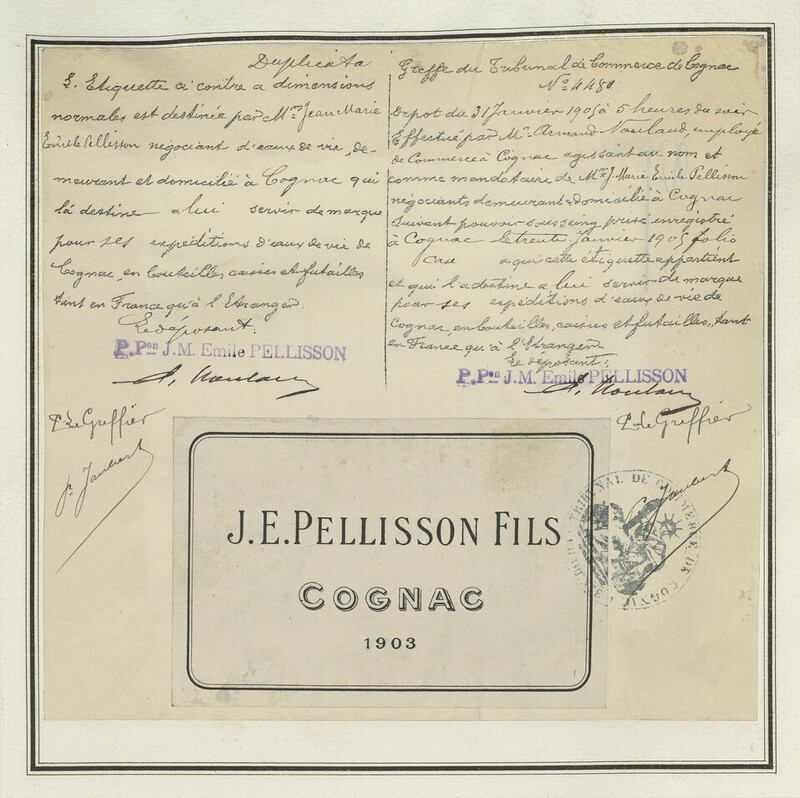 Duplicata
L. Etiquette ci contre a dimensions
normales est destinée par Mr. Jean Marie
Emile Pellisson négociant d'eaux de vie, de-
meurant et domicilié à Cognac qui
la destine a lui servir de marque
pour ses expéditions d'eaux de vie de
Cognac, en bouteilles, caisses et futailles
tant en France qu'à l'Etranger.
Le déposant:
P.Pon J.M. Emile PELLISSON
P. Le Greffier
Greffe du Tribunal de Commerce de Cognac
No 4480
Depot du 31 Janvier 1905 à 5 heures du soir
Effectué par Mr. Armand Noulaud, employé
de Commerce à Cognac agissant au nom et
comme mandataire de Mr J. Marie Emile Pellisson
négociants demeurant & domicilié à Cognac
suivant pouvoir sousseing privé enregistré
à Cognac le trente Janvier 1905 folio
Case a qui cette étiquette appartient
et qui l'a destine a lui servir de marque
pour ses expéditions d'eaux de vie de
Cognac, en bouteilles, caisses et futailles, tant
en France qu'à l'Etranger
Le déposant:
P.Pon J.M. Emile PELLISSON
P. Le Greffier
J.E.PELLISSON FILS
COGNAC
1903
TRIBUNAL DE COMMERCE DE COGNAC